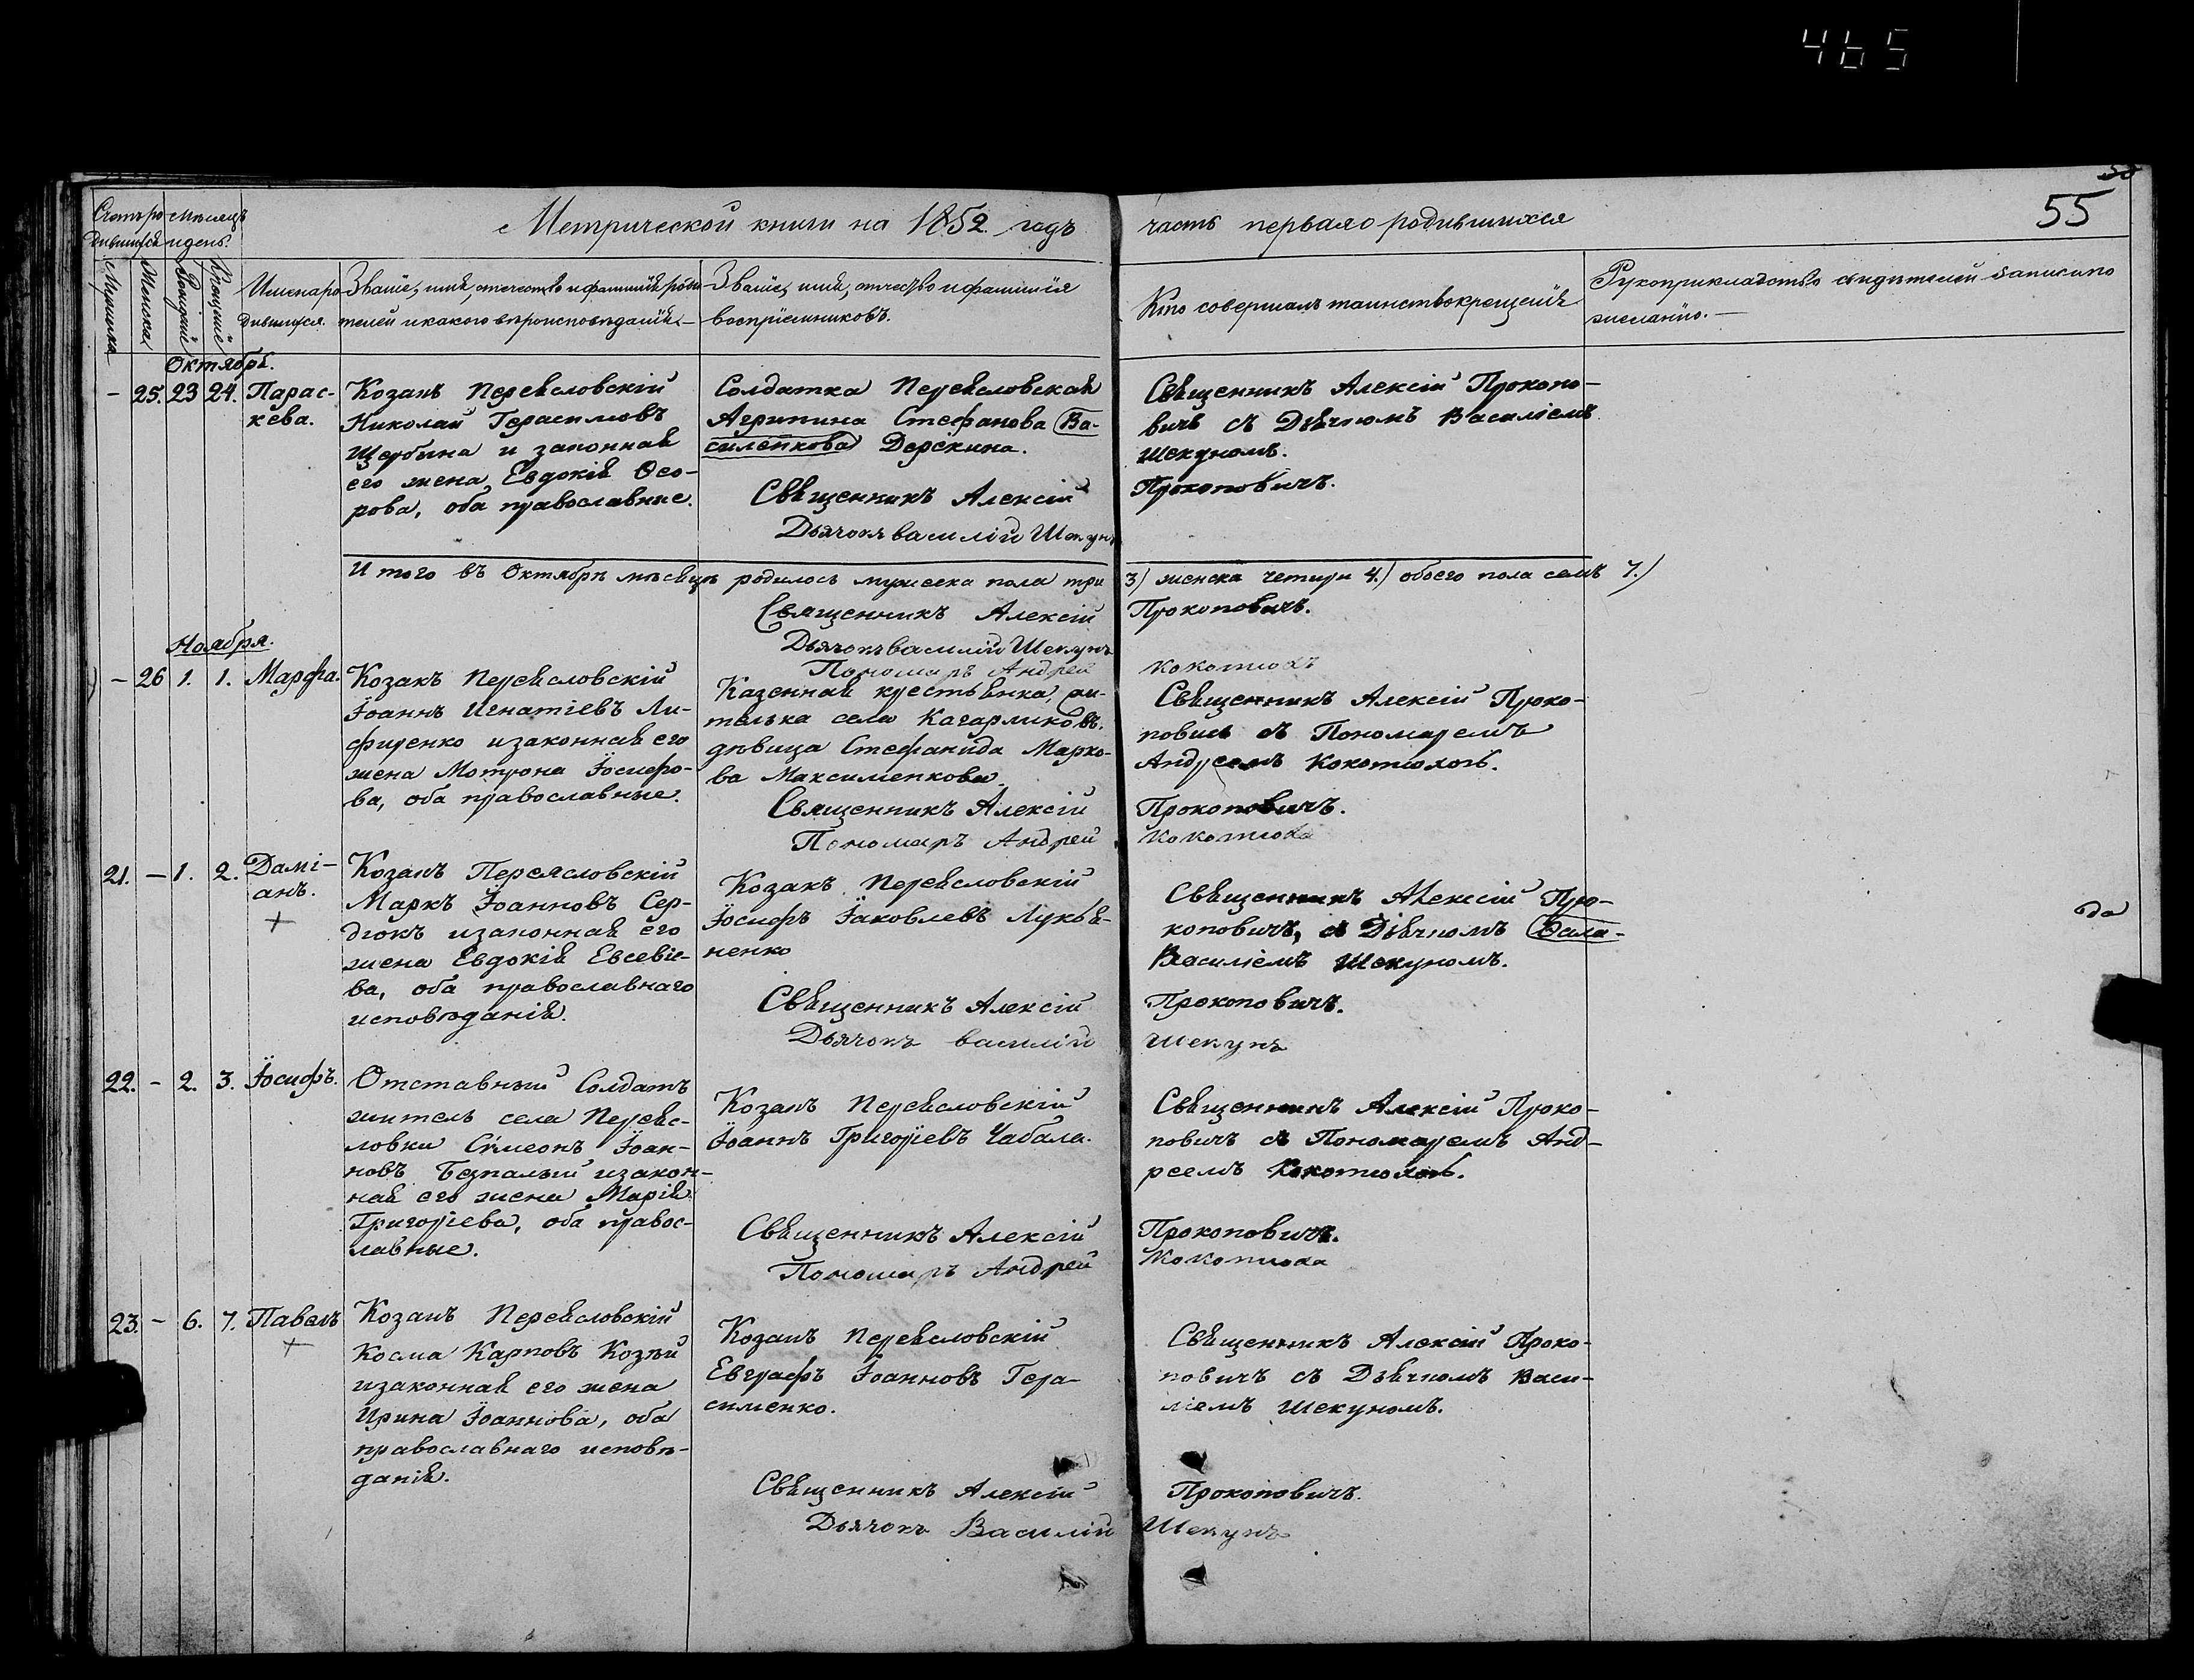 465
50
55
Метрической книги на 1852 годъ часть первая о родившихся
Счетъ ро-
дившихся
Мѣсяцъ
и день.
Мужеска
Женска
Рожденія
Крещенія
Имена ро-
дившихся.
Званіе, имя, отечество и фамилія роди-
телей и какого вѣроисповѣданія.
Званіе, имя, отчество и фамилія
воспріемниковъ.
Кто совершалъ таинство крещенія
Рукоприкладство свидѣтелей записи по
желанію.
Октября.
- 25. 23 24. Парас-
кева.
Козакъ Переясловскій
Николай Герасимовъ
Щербина и законная
его жена Евдокія Ѳео-
рова, оба православные.
Солдатка Переясловская
Агрипина Стефанова Ва-
силенкова Дерёкина.
Священникъ Алексій
Дьячокъ василій Шекунъ
Священникъ Алексій Прокопо-
вичъ съ Дьячкомъ Василіемъ
Шекуномъ.
Прокоповичъ.
Итого въ Октябрѣ мѣсяцѣ родилось мужеска пола три 3) женска четыри 4.) обоего пола семь 7.)
Священникъ Алексій Прокоповичъ.
Дьячокъ василій Шекунъ
Пономарь Андрей Кокотюха
Ноября.
- 26 1. 1. Марфа.
Козакъ Переясловскій
Іоаннъ Игнатіевъ Ли-
фиренко и законная его
жена Мотрона Іосифо-
ва, оба православные.
Казенная крестьянка, жи-
телька села Кагарликовъ.
дѣвица Стефанида Марко-
ва Максименкова.
Священникъ Алексій
Пономарь Андрей
Священникъ Алексій Проко-
повичъ съ Пономаремъ
Андреемъ Кокотюхою.
Прокоповичъ.
Кокотюха
21. - 1. 2. Дамі-
анъ.
+
Козакъ Переясловскій
Маркъ Іоанновъ Сер-
дюкъ и законная его
жена Евдокія Евсевіе-
ва, оба православнаго
исповѣданія.
Козакъ Переясловскій
Іосифъ Іаковлевъ Лукья-
ненко
Священникъ Алексій
Дьячокъ василій
Священникъ Алексій Про-
коповичъ, съ Дьячкомъ
Василіемъ Шекуномъ.
Прокоповичъ.
Шекунъ
да
22. - 2. 3. Іосифъ.
Отставный Солдатъ
житель села Переяс-
ловки Сѵмеонъ Іоан-
новъ Безпалый и закон-
ная его жена Марія
Григоріева, оба правос-
лавные.
Козакъ Переясловскій
Іоаннъ Григоріевъ Чабала.
Священникъ Алексій
Пономарь Андрей
Священникъ Алексій Проко-
повичъ съ Пономаремъ Анд-
реемъ Кокотюхою.
Прокоповичъ.
Кокотюха
23. - 6. 7. Павелъ
+
Козакъ Переясловскій
Косма Карповъ Козѣй
и законная его жена
Ирина Іоаннова, оба
православнаго исповѣ-
данія.
Козакъ Переясловскій
Евграфъ Іоанновъ Гера-
сименко.
Священникъ Алексій
Дьячокъ Василій
Священникъ Алексій Проко-
повичъ съ Дьячкомъ Васи-
ліемъ Шекуномъ.
Прокоповичъ.
Шекунъ